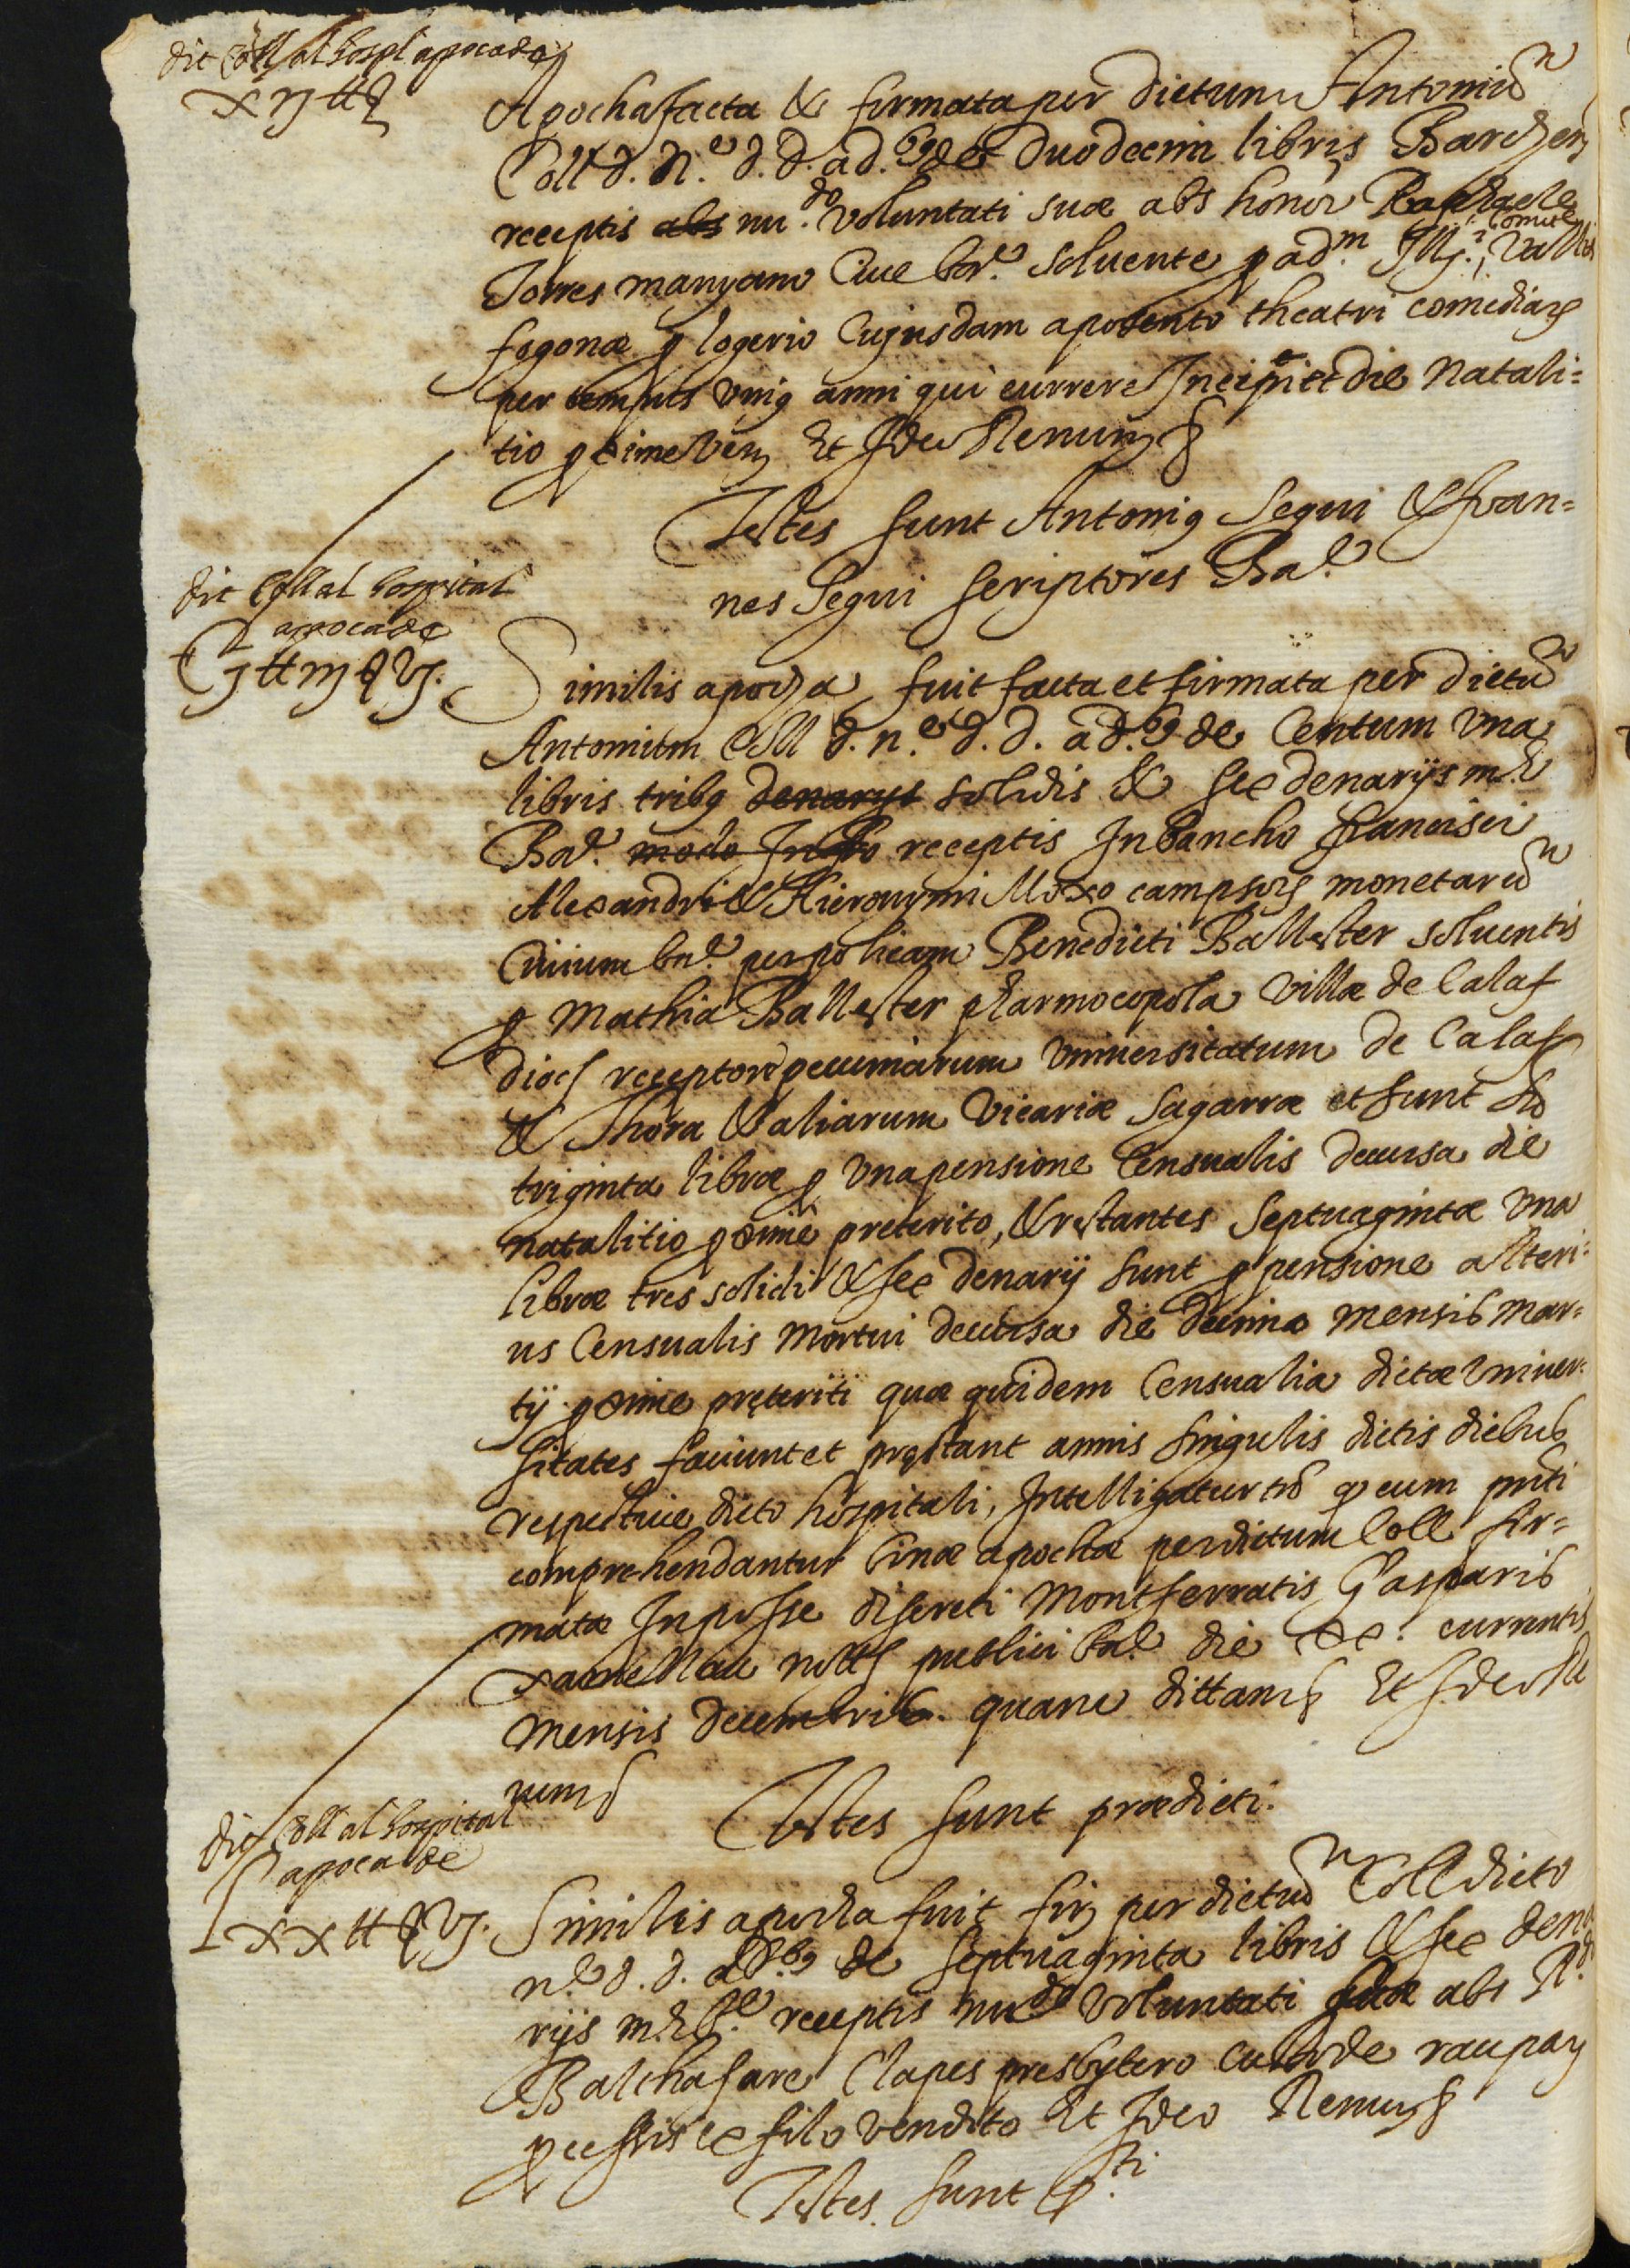 dit Coll al hospl apocade
xij tt
Apocha facta & firmata per dictum Antoniũ
Coll d. n.e d. d. ad. de duodecim libris Barchen
receptis abs nu.do voluntati suæ abs honor Raphaele
Torres manyano Ciue bar.e soluente p ad.m Ill. Comite Vallis
fogonæ p logerio Cujusdam aposento theatri comediarum
per tempus vnig anni qui currere Incipiet die Natali=
tio p xime Ven Et Ideo Renun
Testes sunt Antonig Segui & Joan=
nes Segui scriptores Ba.e
dit Coll al hospital
apocade
Cj tt iij ß Vj.
Similis apocha fuit facta et firmata per dictũ
Antonium Coll d. n.e d. d. ad. de Centum vna
libris tribg denarys solidis & sex denarijs m.l
Ba.e modo Infro receptis In bancho francisci
Alexandri & Hieronymi Moxo campsorg monetarũ
Ciuium bn.e per policam Benedicti Ballester soluentis
p Mathia Ballester pharmocopola Villæ de Calaf
dioc receptore pecuniarum vniuersitatum de Calaf
& Thora & aliarum Vicariæ Sagarræ et sunt
triginta libræ p vna pensione Censualis decursa die
natalitio p xime preterito, & restantes Septuaginta vna
libræ tres solidi & sex denarij sunt p pensione alteri=
us Censualis Mortui decursa die decimo mensis Mar=
tij p xime preteriti quæ quidem Censualia dictæ Vniuer=
sitates faciunt et prestant annis singulis dictis diebus
respectiue dicto hospitali, Intelligatur tñ q eum pnti
comprehendantur binæ apochæ per dictum Coll fir=
matæ In posse discreti Montserratis Gasparis
Xamellau notty publici ba.e die xx. currentis
mensis decembris. quam dittam Et Ideo Re
nun
Testes sunt prædicti.
dit Coll al hospital
apoca de
Lxx tt ß Vj.
Similis apocha fuit fir per dictũ Coll dicto
n.e d. d. ad. de septuaginta libris & sex dena
rijs m.l B.e receptis nu.do voluntati suæ abs R.do
Balthasare Clapes presbytero custode raupar
p cessis ex filo vendito Et Ideo Renun
Testes sunt p.ti